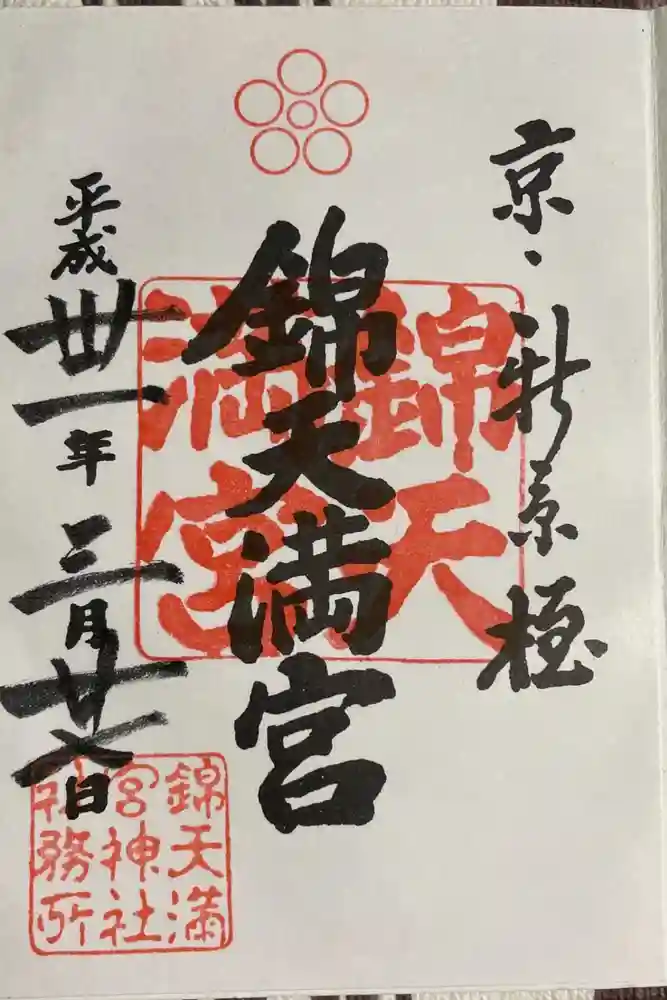 京・新京極
錦天満宮
錦天
満宮
平成丗一年三月廿八日
錦天満
宮神社
社務所